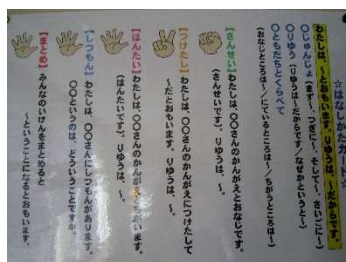 ☆はなしかたカード☆
わたしは、～とおもいます。りゆうは、～だからです。
○じゅんじょ(まず～、つぎに～、そして～、さいごに～)
○りゆう(りゆうは～だからです/なぜかというと～)
○ともだちとくらべて
(おなじところは～/にているところは～/ちがうところは～)
【さんせい】わたしは、○○さんのかんがえとおなじです。
(さんせいです)。りゆうは、～。
【つけたし】わたしは、○○さんのかんがえにつけたして
～だとおもいます。りゆうは、～。
【はんたい】わたしは、○○さんのかんがえとちがいます。
(はんたいです)。りゆうは、～。
【しつもん】わたしは、○○さんにしつもんがあります。
○○というのは、どういうことですか。
【まとめ】みんなのいけんをまとめると
～ということになるとおもいます。